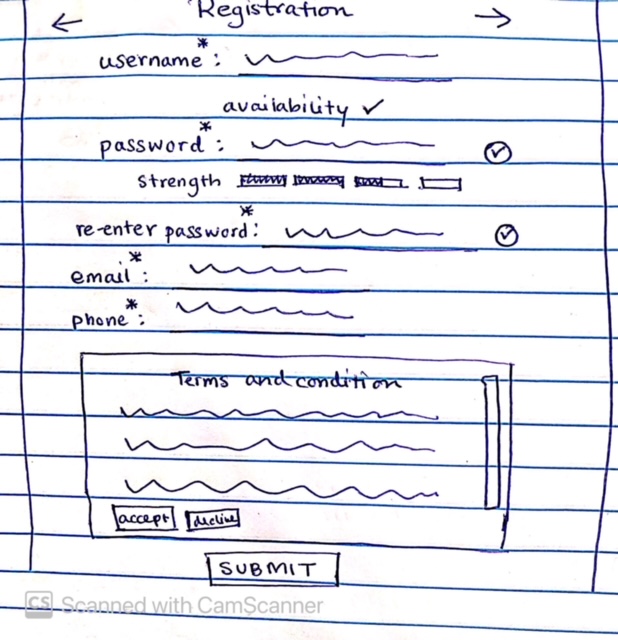 ← Registration →
username*:
availability ✓
password*:
Strength
re-enter password*:
email*:
phone*:
Terms and condition
accept decline
SUBMIT
CS Scanned with CamScanner